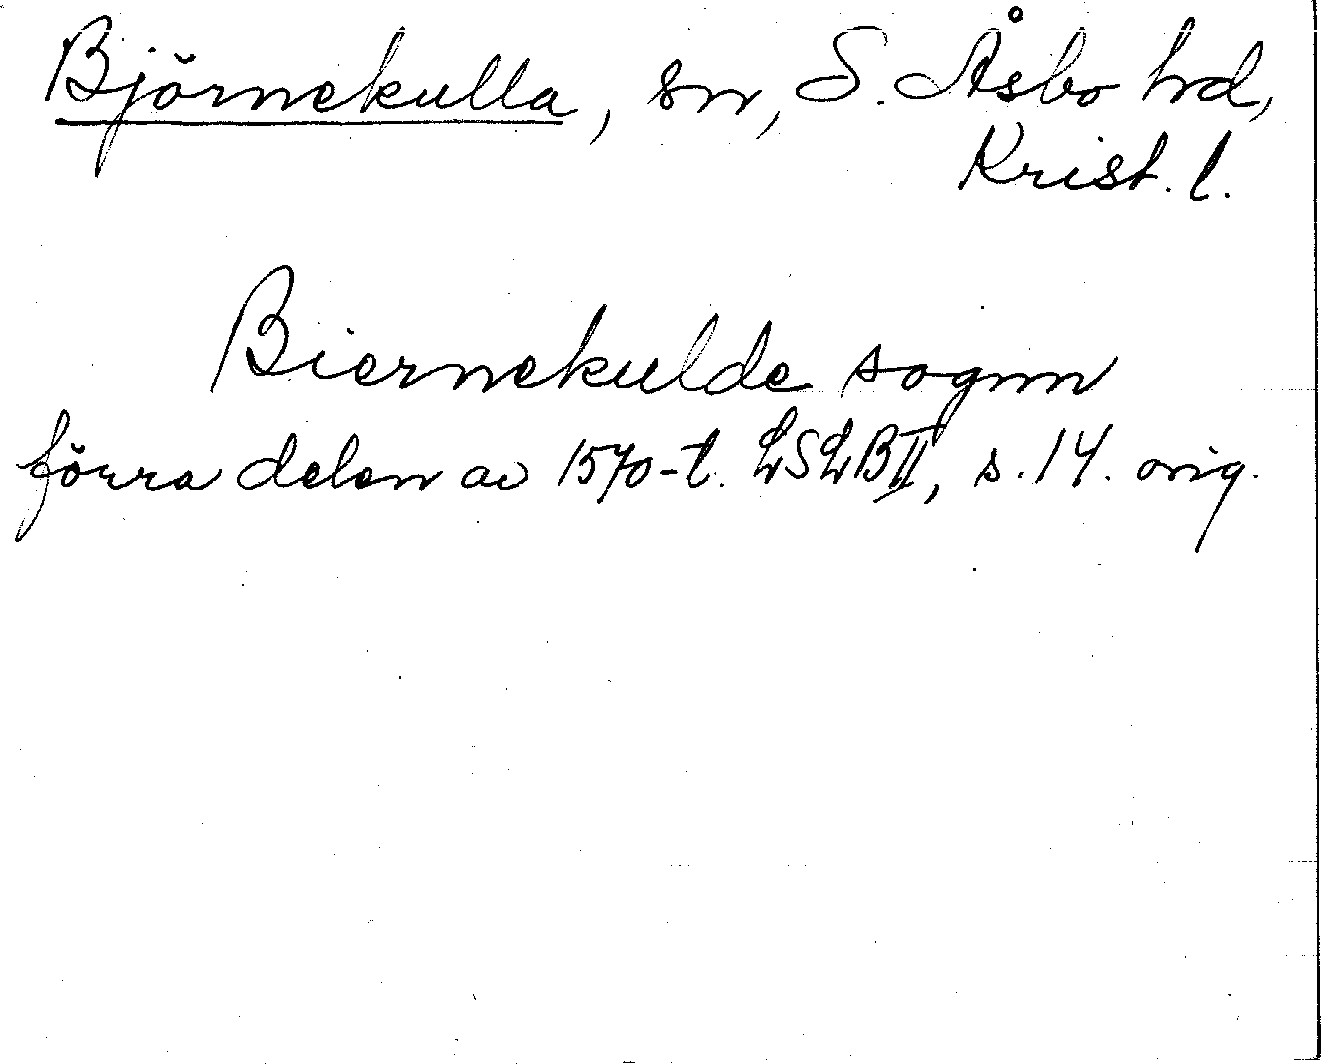 Björnekulla, sn, S. Åsbo hd,
Krist. l.
Biernekulde sognn
förra delen av 1570-t. LSLBII, s. 14. orig.